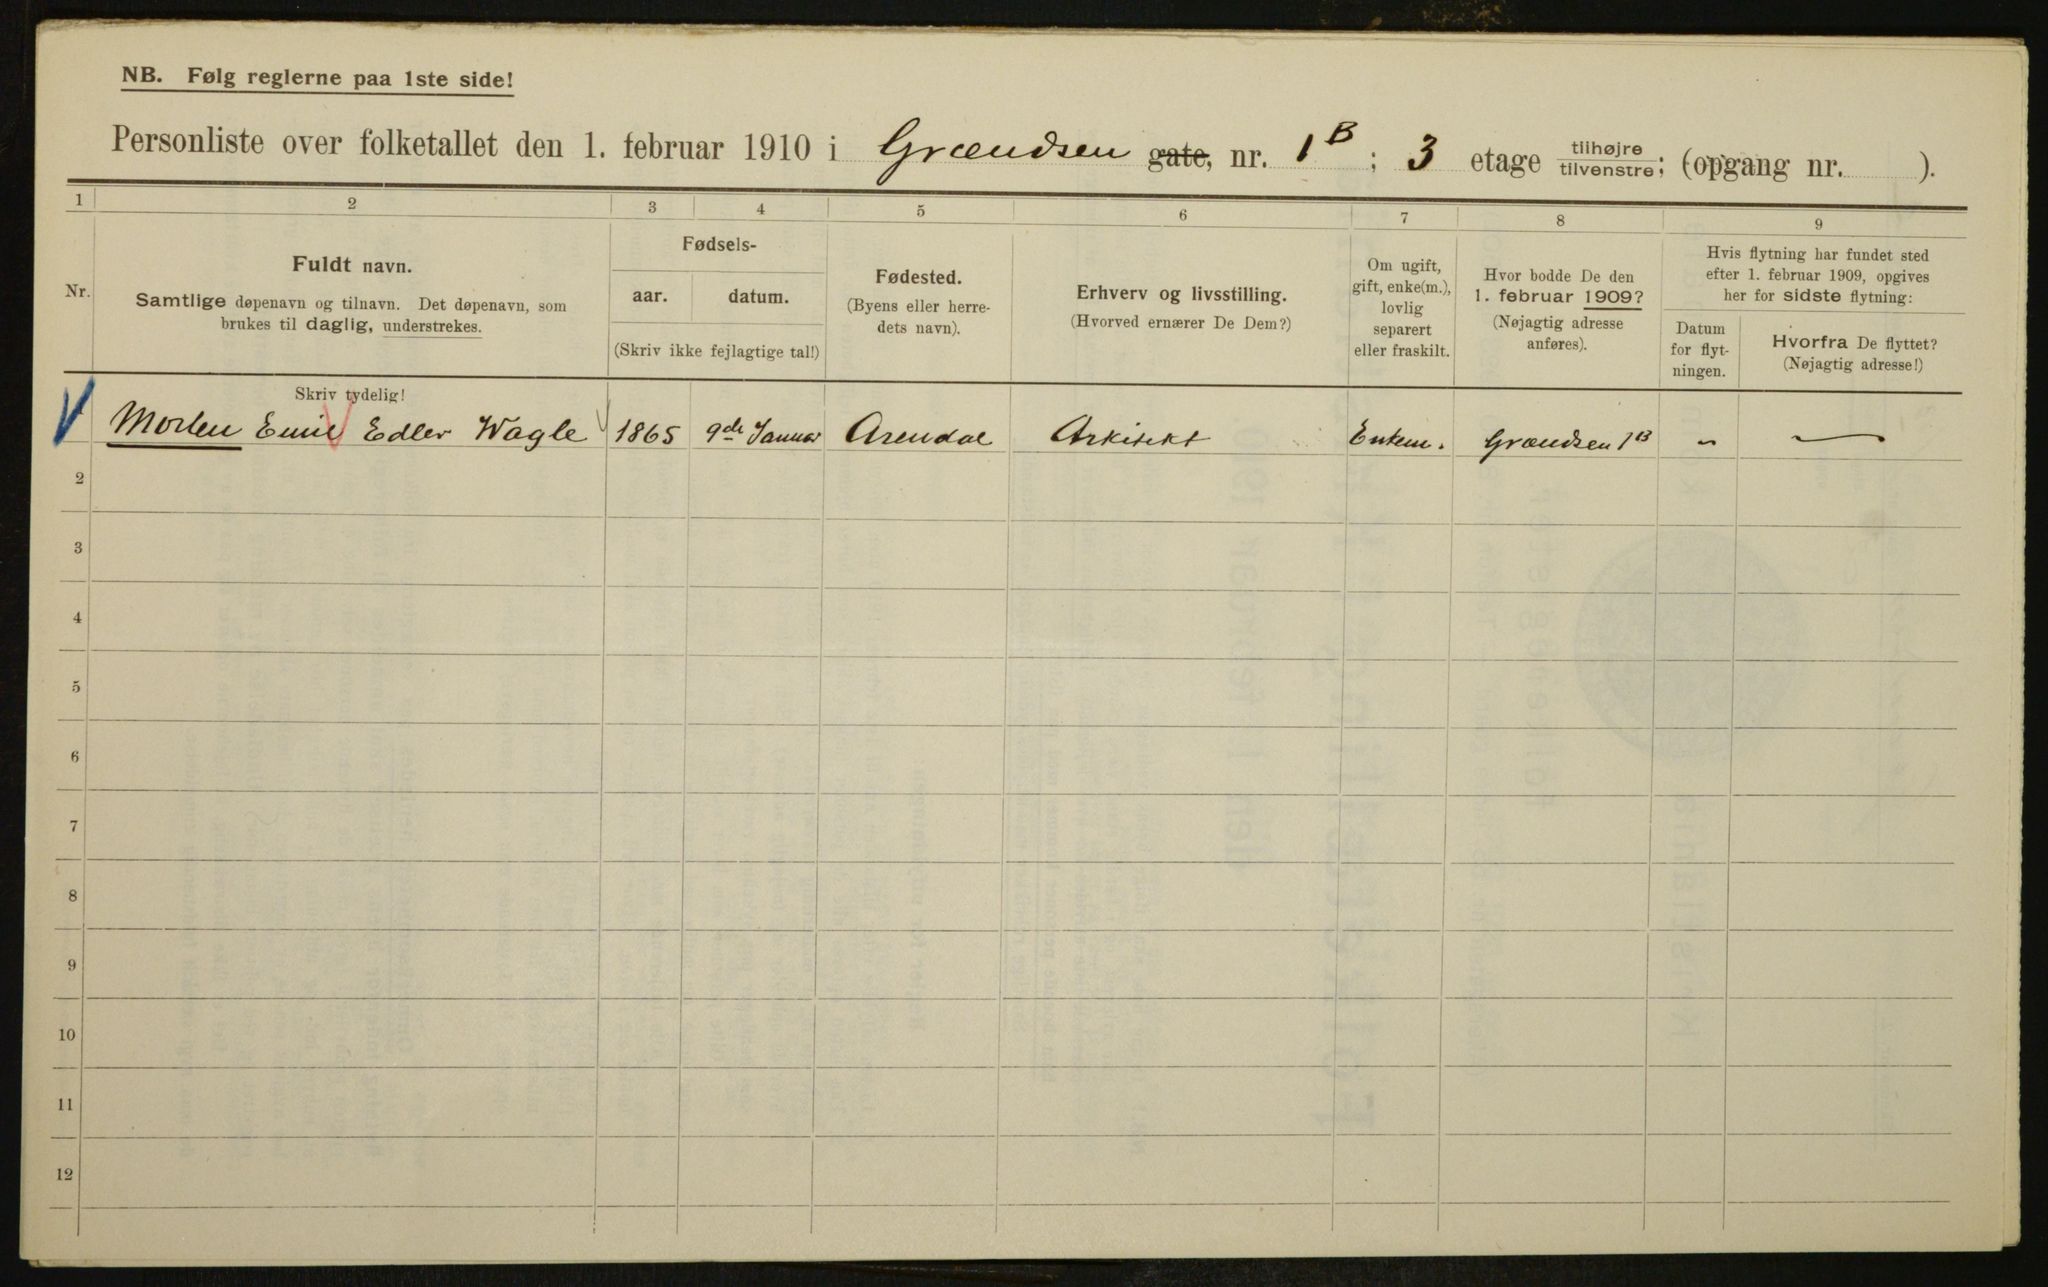 NB. Følg reglerne paa 1ste side!
Personliste over folketallet den 1. februar 1910 i Grændsen gate, nr. 1B; 3 etage tilhøjre/tilvenstre; (opgang nr. ).
1 2 3 4 5 6 7 8 9
Nr.
Fuldt navn.
Samtlige døpenavn og tilnavn. Det døpenavn, som
brukes til daglig, understrekes.
Fødsels-
aar. datum.
(Skriv ikke fejlagtige tal!)
Fødested.
(Byens eller herre-
dets navn).
Erhverv og livsstilling.
(Hvorved ernærer De Dem?)
Om ugift,
gift, enke(m.),
lovlig
separert
eller fraskilt.
Hvor bodde De den
1. februar 1909?
(Nøjagtig adresse
anføres).
Hvis flytning har fundet sted
efter 1. februar 1909, opgives
her for sidste flytning:
Datum
for flyt-
ningen.
Hvorfra De flyttet?
(Nøjagtig adresse!)
Skriv tydelig!
Morten Emil Edler Wagle 1865 9de Januar Arendal Arkitekt Enkem. Grændsen 1B - -
2
3
4
5
6
7
8
9
10
11
12